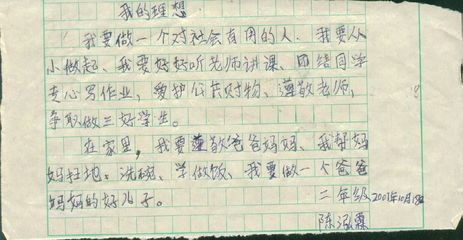 我的理想
我要做一个对社会有用的人。我要从
小做起、我要好好听老师讲课、团结同学
专心写作业，爱护公共财物、遵敬老师，
争取做三好学生。
在家里，我要遵敬爸爸妈妈、我帮妈
妈扫地、洗碗、学做饭、我要做一个爸爸
妈妈的好儿子。
二年级 2007年10月18日
陈泓霖